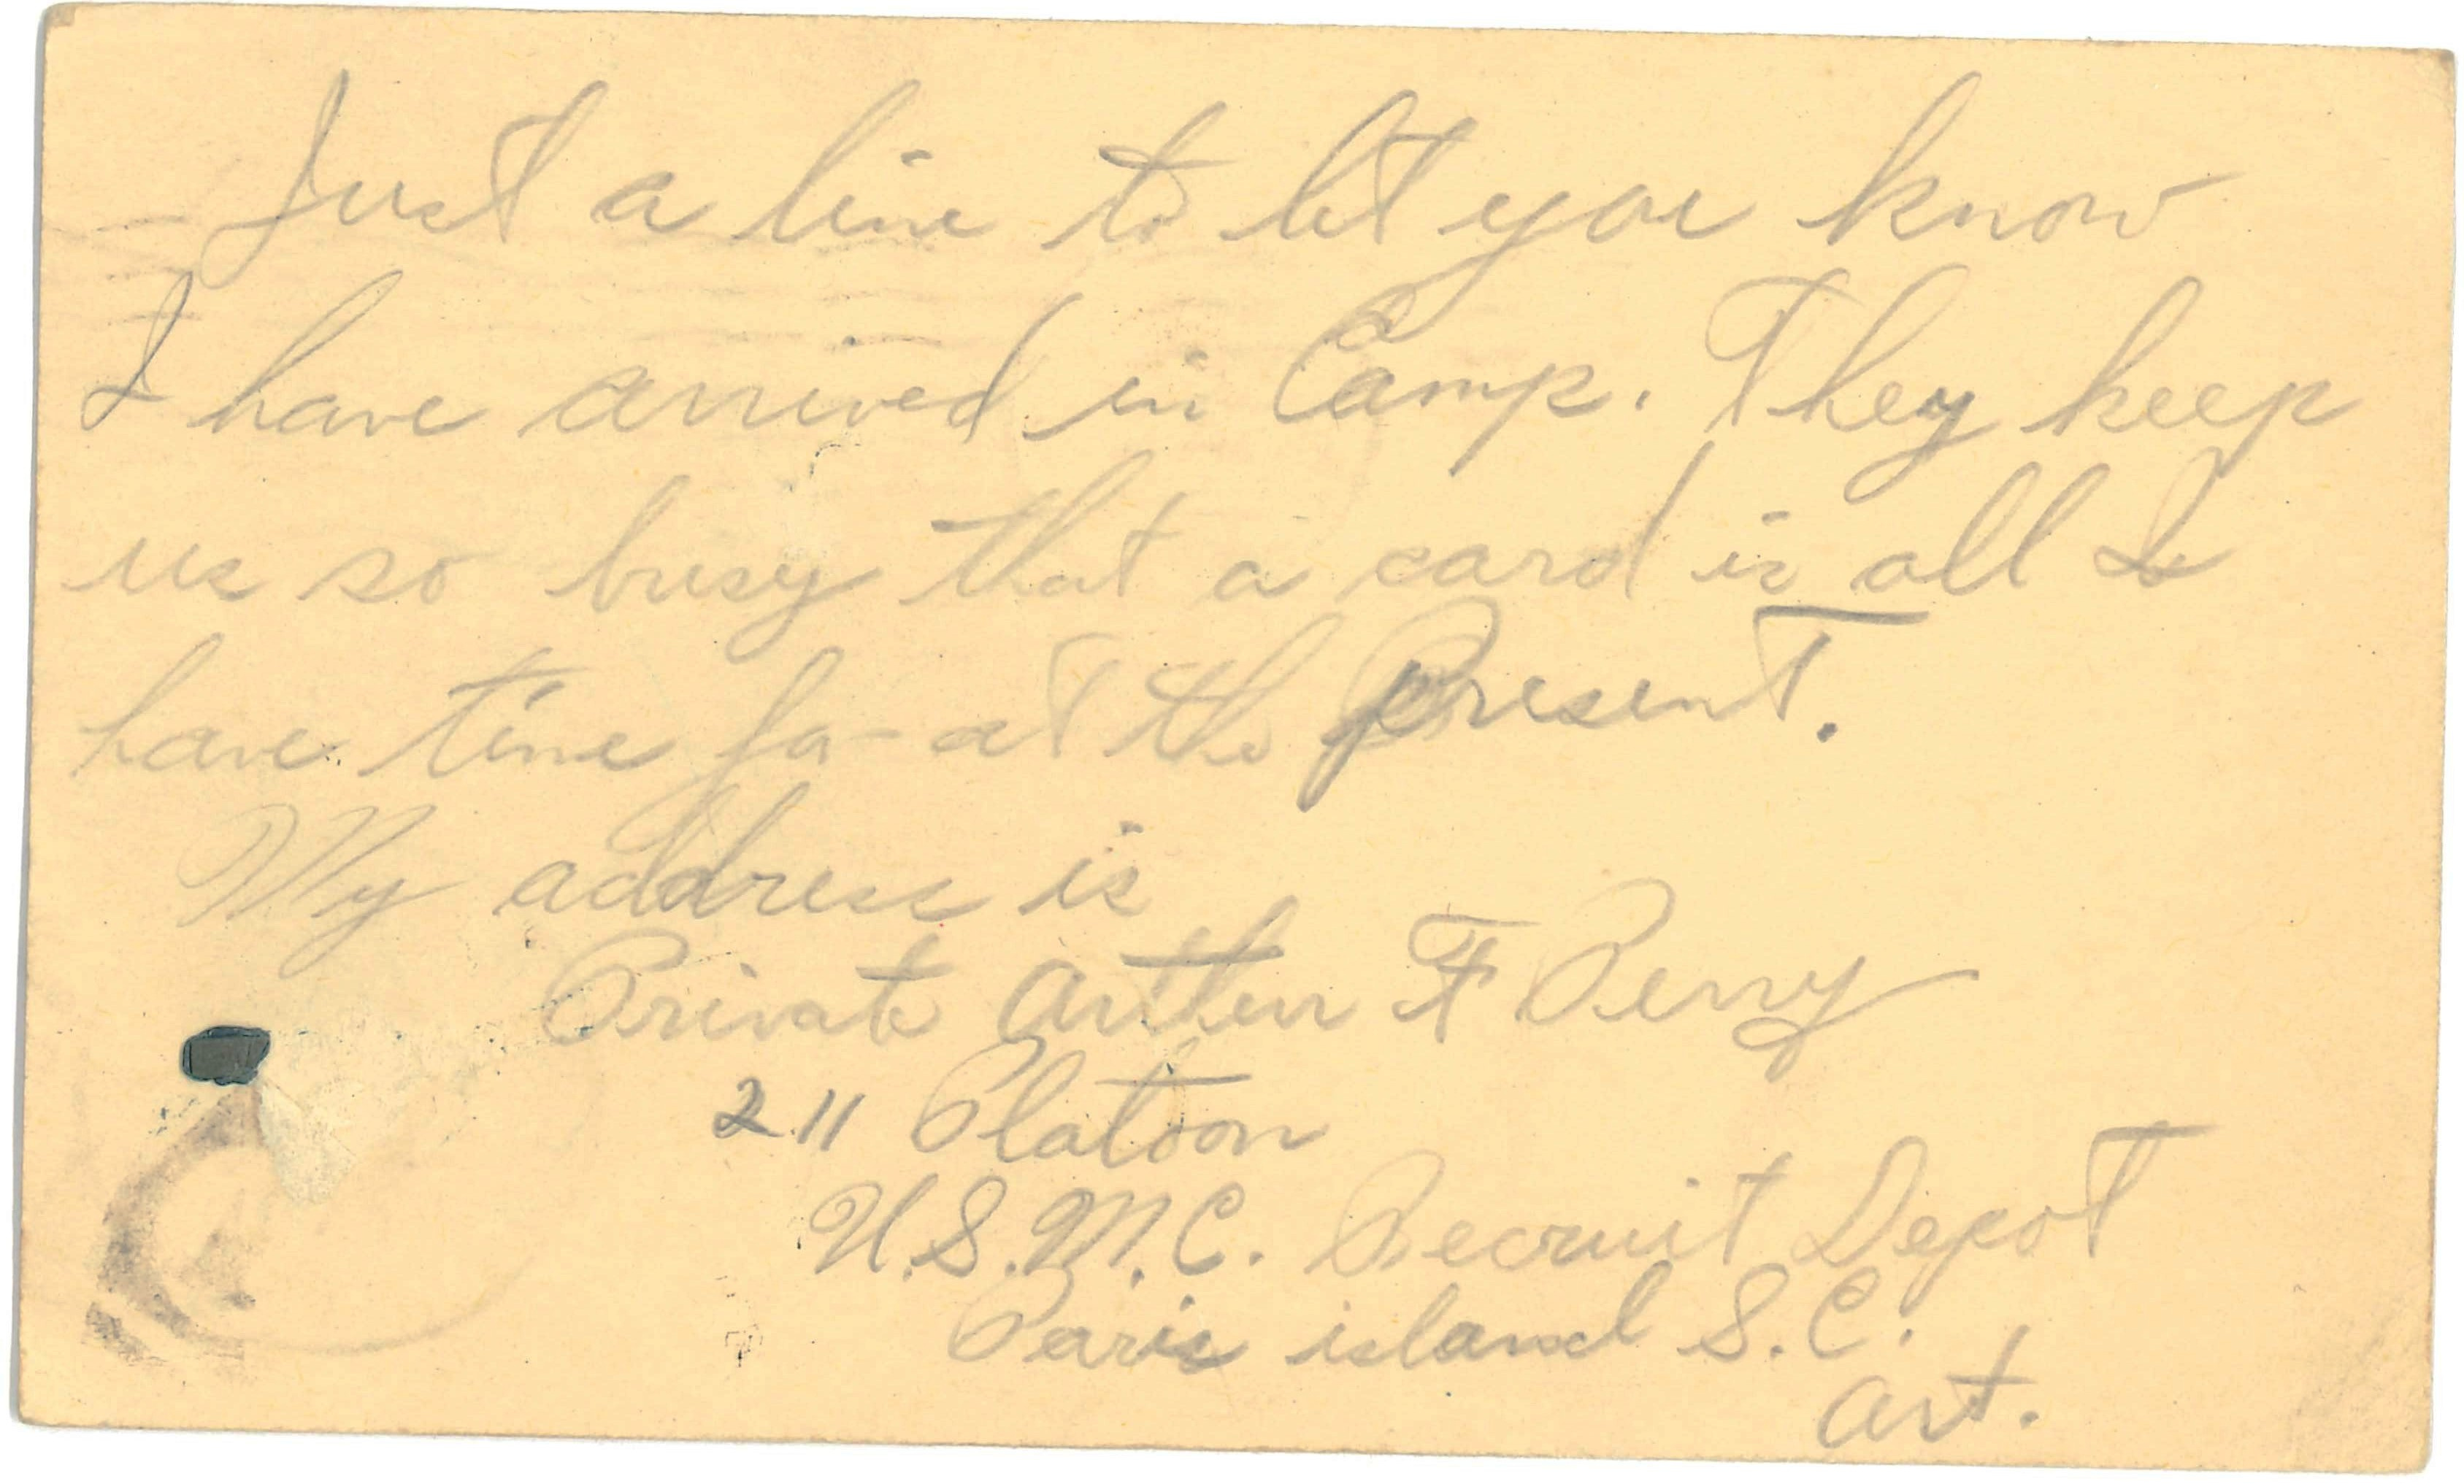 Just a line to let you know
I have arrived in Camp. They keep
us so busy that a card is all I
have time for at the present.
My address is
Private Arthur F Perry
211 Platoon
U.S.M.C. Recruit Depot
Paris island S.C.
Art.